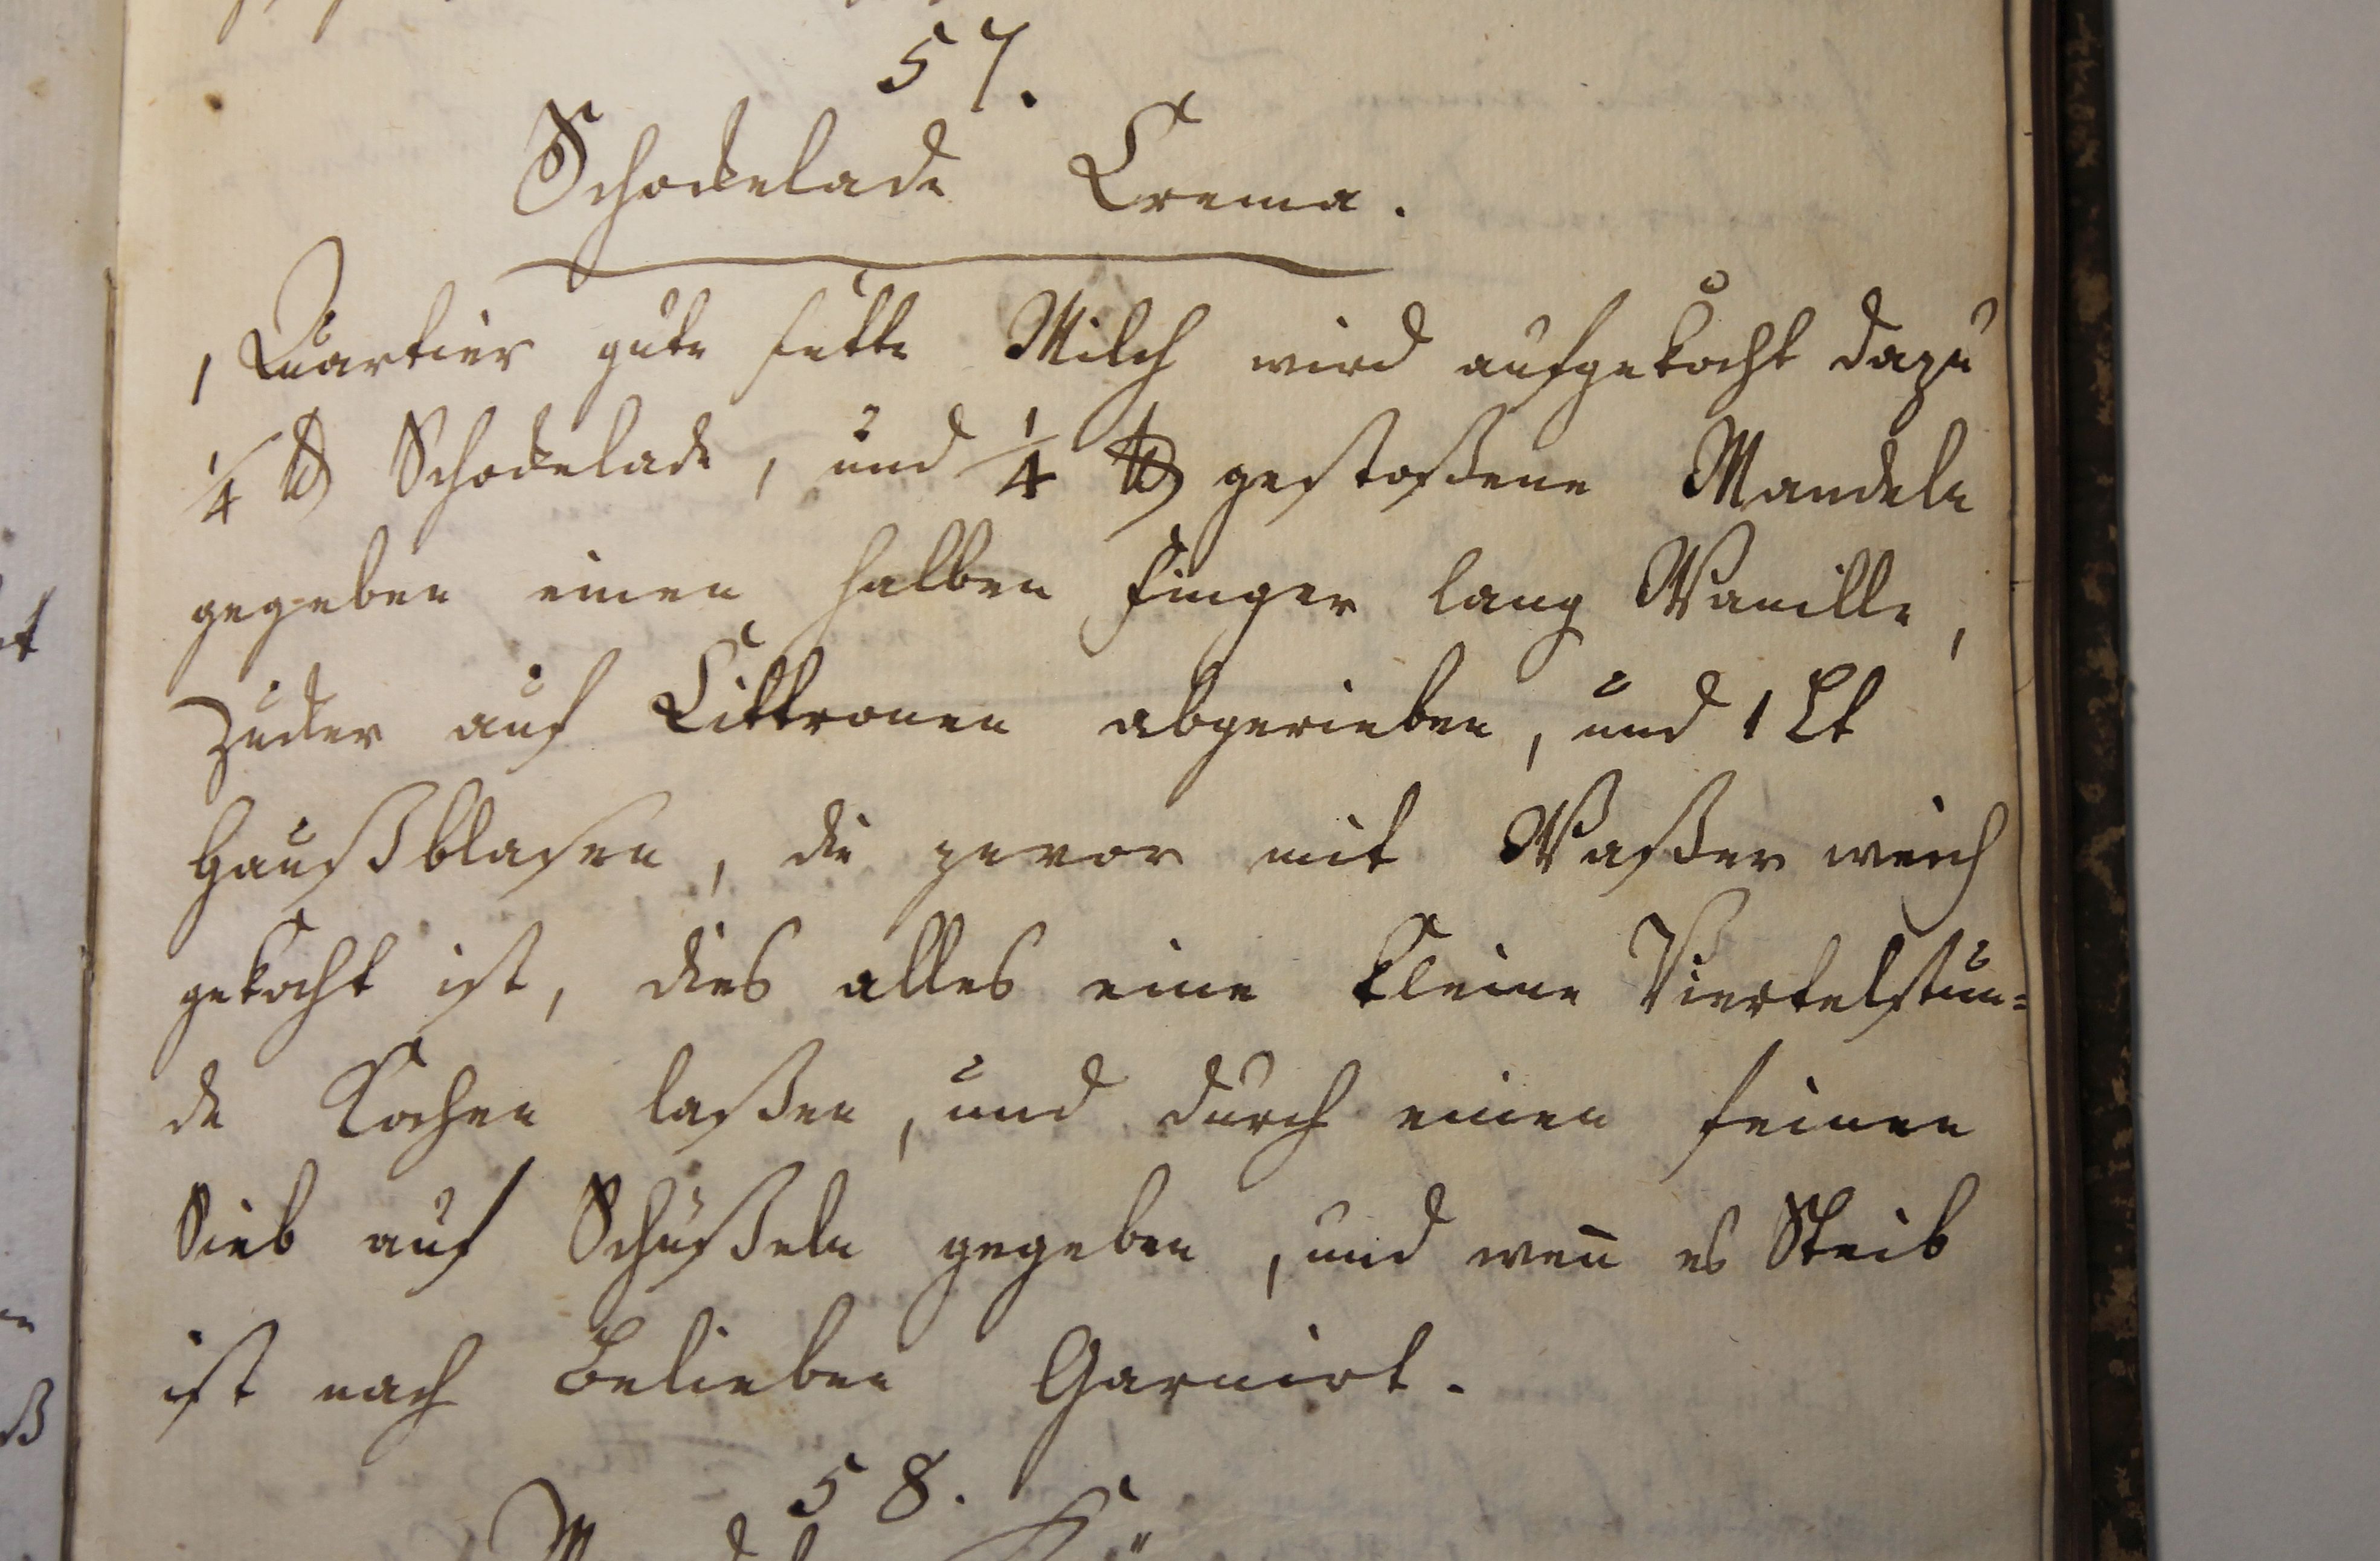 57.
Schockelade Crema.
1 Quartier gute fette Milch wird aufgekocht dazu
1/4 ℔ Schockelade, und 1/4 ℔ gestoßene Mandeln
gegeben einen halben Finger lang Wanille,
Zucker auf Cittronen abgerieben, und 1 Lt
Haußblasen, die zevor mit Waßer weich
gekocht ist, dies alles eine kleine Viertelstun=
de Kochen laßen, und durch einen feinen
Sieb auf Schüßeln gegeben, und wen̄ es Steib
ist nach Belieben Garnirt.
58.